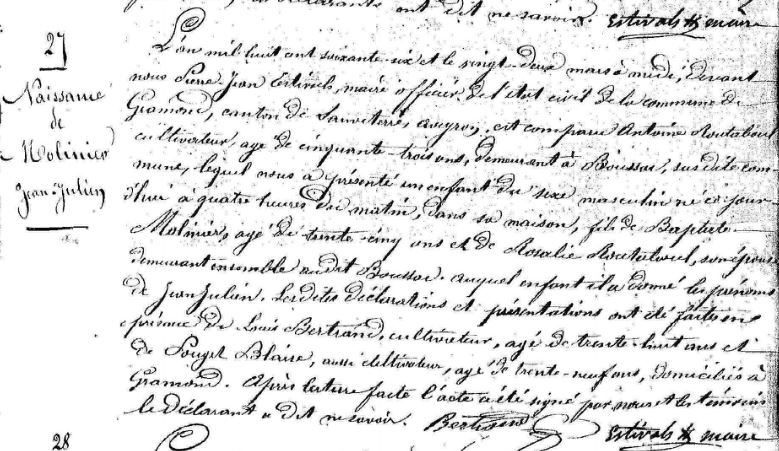 déclarant ont dit ne savoir. Estivals maire
27
Naissance
de
Molinier
Jean Julien
L'an mil huit cent soixante-six et le vingt-deux mars à midi, devant
nous Pierre Jean Estivals, maire officier de l'état civil de la commune de
Gramond, canton de Sauveterre, aveyron, est comparu Antoine Routaboul
cultivateur, agé de cinquante-trois ans, demeurant à Boussac, susdite com-
mune, lequel nous a présenté un enfant du sexe masculin né ce jour-
d'hui à quatre heures du matin, dans sa maison, fils de Baptiste
Molinier, agé de trente-cinq ans et de Rosalie Routaboul, son épouse
demeurant ensemble audit Boussac. auquel enfant il a donné les prénoms
de Jean Julien. Lesdites déclarations et présentations ont été faites en
présence de Louis Bertrand, cultivateur, agé de trente-huit ans et
de Pouget Blaise, aussi cultivateur, agé de trente-neuf ans, domiciliés à
Gramond. Après lecture faite l'acte a été signé par nous et les témoins
le déclarant a dit ne savoir. Bertrand Estivals maire
28